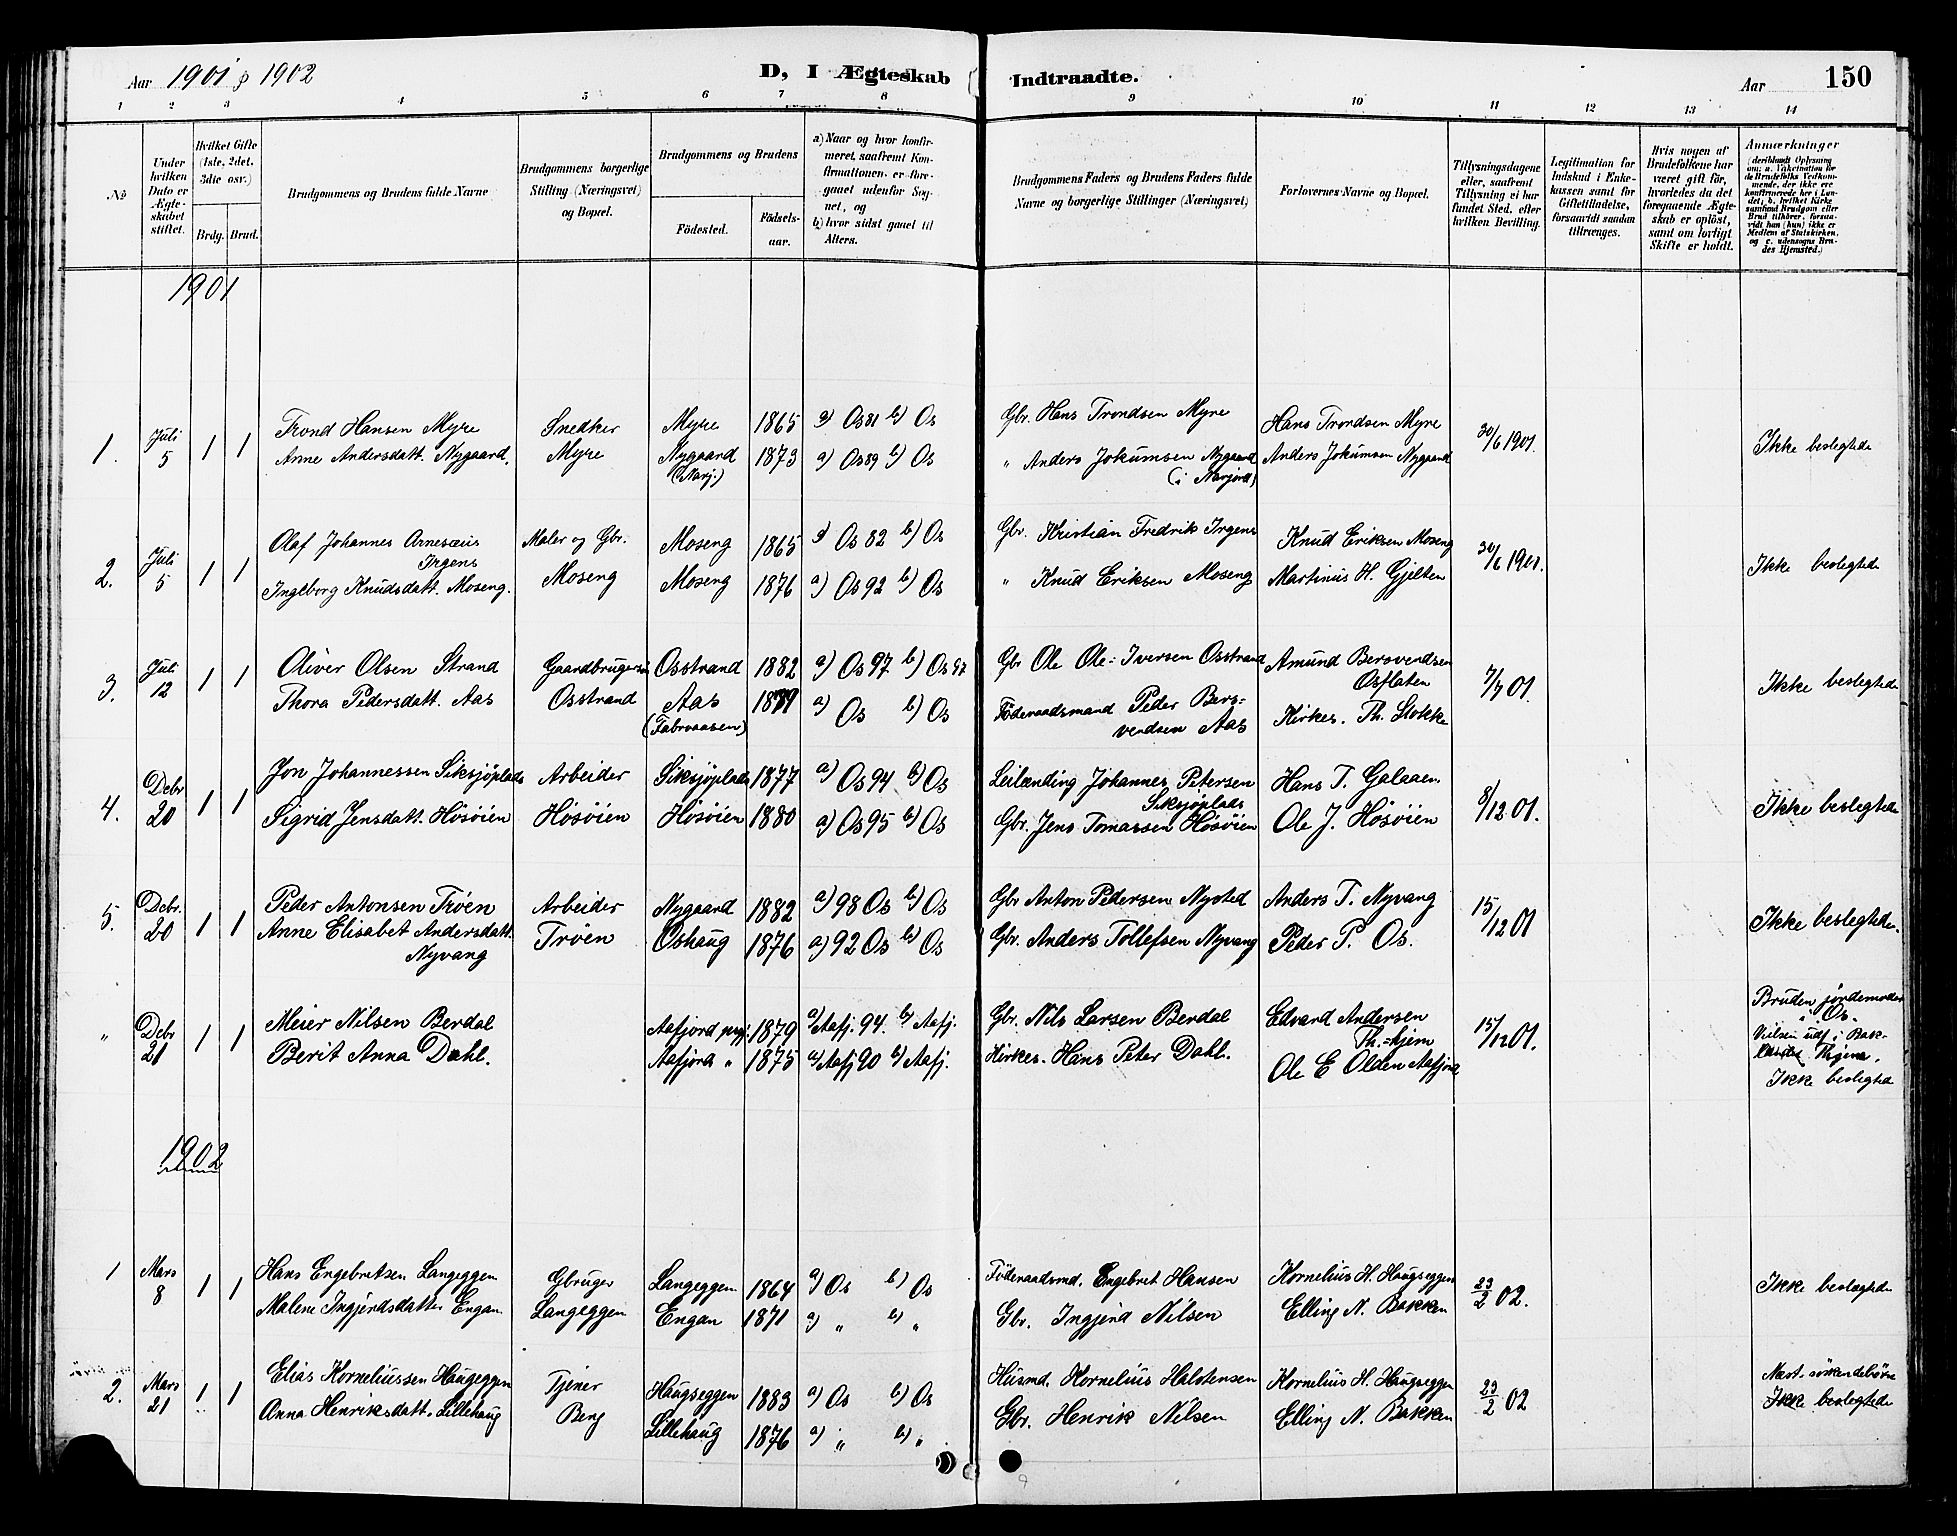 Aar 1901 & 1902
D, I Ægteskab Indtraadte.
Aar 150
1 2 3 4 5 6 7 8 9 10 11 12 13 14
No
Under hvilken Dato er Ægteskabet stiftet.
Hvilket Gifte (1ste, 2det, 3die osv.)
Brdg. Brud.
Brudgommens og Brudens fulde Navne
Brudgommens borgerlige Stilling (Næringsvei) og Bopæl.
Brudgommens og Brudens
Fødested. Fødselsaar.
a) Naar og hvor konfirmeret, saafremt Konfirmationen er foregaaet udenfor Sognet, og
b) hvor sidst gaaet til Alters.
Brudgommens Faders og Brudens Faders fulde Navne og borgerlige Stillinger (Næringsvei)
Forlovernes Navne og Bopæl.
Tillysningsdagene eller, saafremt Tillysning ei har fundet Sted, efter hvilken Bevilling.
Legitimation for Indskud i Enkekassen samt for Giftetilladelse, forsaavidt saadan tiltrænges.
Hvis nogen af Brudefolkene har været gift før, hvorledes da det foregaaende Ægteskab er opløst, samt om lovligt Skifte er holdt.
Anmærkninger
(deriblandt Oplysning om: a. Vakcination for de Brudefolks Vedkommende, der ikke ere konfirmerede her i Landet; b. hvilket Kirkesamfund Brudgom eller Brud tilhører, forsaavidt han (hun) ikke er Medlem af Statskirken, og c. udensogns Brudes Hjemsted.)
1901
1. Juli 5 1 1 Trond Hansen Myre Snedker Myre 1865 a) Os 81 b) Os Gbr. Hans Trondsen Myre Hans Trondsen Myre 30/6 1901. Ikke beslegtede
Anne Andersdatt. Nygaard. Myre Nygaard (Narj.) 1873 a) Os 89 b) Os " Anders Jokumsen Nygaard (i Narjord) Anders Jokumsen Nygaard
2. Juli 5 1 1 Olaf Johannes Arnesæus Irgens Maler og Gbr. Moseng 1865 a) Os 82 b) Os Gbr. Kristian Fredrik Irgens Knud Eriksen Moseng 30/6 1901. Ikke beslegtede
Ingeborg Knudsdatt. Moseng. Moseng Moseng 1876 a) Os 92 b) Os " Knud Eriksen Moseng Martinus H. Gjelten
3. Juli 12 1 1 Oliver Olsen Strand Gaardbruger Osstrand 1882 a) Os 97 b) Os 97 Gbr Ole Ole-Iversen Osstrand Amund Bersvendsen Osflaten 7/7 01. Ikke beslegtede
Thora Pedersdatt. Aas Osstrand Aas a) Os b) Os Føderaadsmand Peder Bersvendsen Aas Kirkes. Th. Stokke
4. Debr 20 1 1 Jon Johannessen Siksjøplads Arbeider Siksjøplads 1877 a) Os 94 b) Os Leilænding Johannes Petersen Siksjøplads Hans T. Galaaen 8/12 01. Ikke beslegtede
Sigrid Jensdatt. Høsøien Høsøien Høsøien 1880 a) Os 95 b) Os Gbr. Jens Tomassen Høsøien Ole J. Høsøien
5. Debr. 20 1 1 Peder Antonsen Trøen Arbeider Nygaard 1882 a) 98 Os b) Os Gbr Anton Pedersen Nysted Anders T. Nyvang 15/12 01 Ikke beslegtede.
Anne Elisabet Andersdatt. Nyvang Trøen Oshaug 1876 a) 92 Os b) Os Gbr. Anders Tollefsen Nyvang Peder P. Os.
" Debr 21 1 1 Meier Nilsen Berdal Aafjord prgj. 1879 a) Aafj. 94. b) Aafj. Gbr. Nils Larsen Berdal Edvard Andersen Th.hjem 15/12 01. Bruden jordemoder i Os.
Berit Anna Dahl. Aafjord " 1875 a) Aafj 90 b) Aafj. Kirkes. Hans Peter Dahl. Ole E Olden Aafjord Vielsen udf. i Baklandet Thjem. Ikke beslegtede
1902
1 Mars 8 1 1 Hans Engebretsen Langeggen Gbruger Langeggen 1864 a) Os b) Os Føderaadsmd. Engebret Hansen Kornelius H. Haugseggen 23/2 02. Ikke beslegtede
Malene Ingjerdsdatter Engan Langeggen Engan 1871 a) " b) " Gbr. Ingjerd Nilsen Elling N. Bakken
2. Mars 21 1 1 Elias Korneliussen Haugeggen Tjener Haugseggen 1883 a) Os b) Os Husmd. Kornelius Halstensen Kornelius H. Haugseggen 23/2 02 Næst-søskendebørn
Anna Henriksdatt. Lillehaug Berg Lillehaug 1876 a) " b) " Gbr. Henrik Nilsen Elling N. Bakken Ikke beslegtede